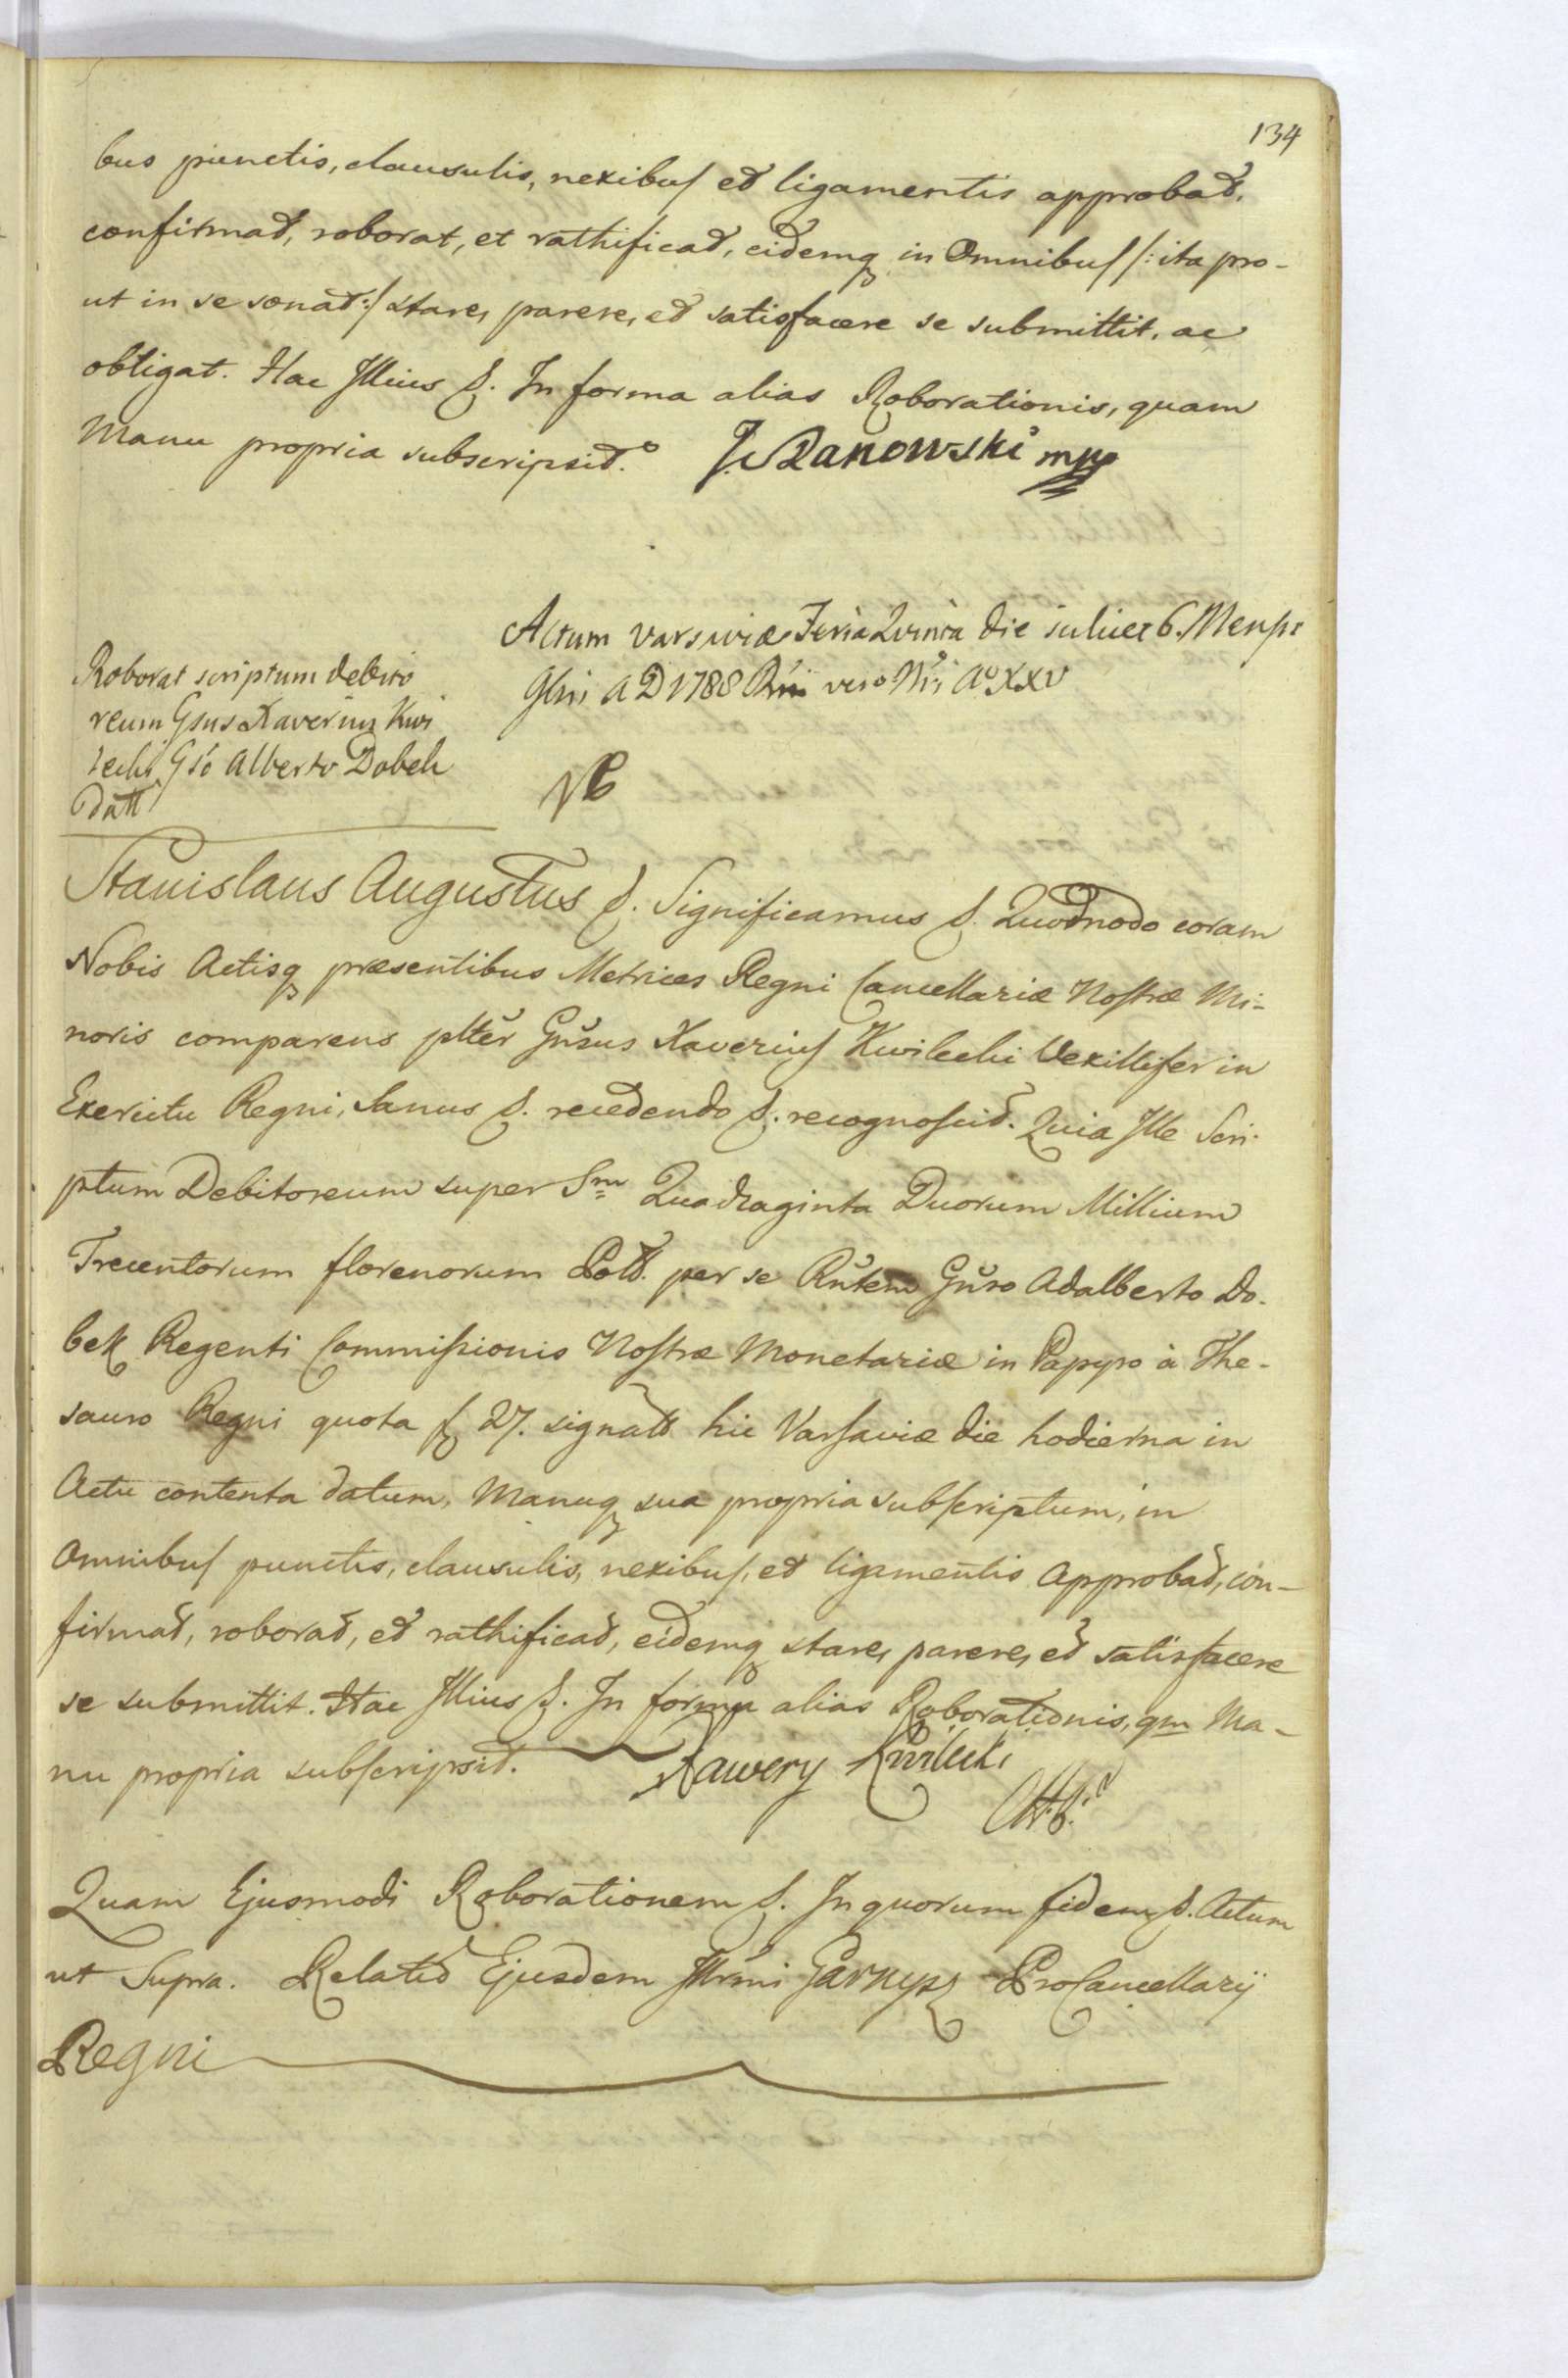 134
bus punctis, clausulis, nexibus et ligamentis approbat,
confirmat, roborat, et rathificat, eidemq in Omnibus /: ita pro-
ut in se sonat :/ stare, parere, et satisfacere se submittit, ac
obligat. Hac Illius &. In forma alias Roborationis, quam
Manu propria subscripsit. J. Ranowski mpp
Actum Varsaviæ Feria Quinta die scilicet 6. Mensis
9bris A D 1788 Rni vero Nri A° XXV
Roborat scriptum debito
reum Gsus Xaverius Kwi
lecki Gso Alberto Dobek
datt
NB
Stanislaus Augustus &. Significamus &. Quod modo coram
Nobis Actisq præsentibus Metrices Regni Cancellariæ Nostræ Mi-
noris comparens plter Gnsus Xaverius Kwilecki Vexillifer in
Exercitu Regni, Sanus &. recedendo &. recognoscit. Quia Ille Scri-
ptum Debitoreum super Sm Quadraginta Duorum Millium
Trecentorum florenorum Poll. per se Rntem Gnso Adalberto Do-
bek Regenti Commissionis Nostræ Monetariæ in Papyro à The-
sauro Regni quota f 27. signatt hic Varsaviæ die hodierna in
Actu contenta datum, Manuq sua propria subscriptum, in
Omnibus punctis, clausulis, nexibus, et ligamentis Approbat, con-
firmat, roborat, et rathificat, eidemq stare, parere, et satisfacere
se submittit. Hac Illius &. In forma alias Roborationis, qm Ma-
nu propria subscripsit. Xawery Kwilecki
Quam Ejusmodi Roborationem &. In quorum fidem &. Actum
ut Supra. Relatio Ejusdem Illrmi Garnysz ProCancellarij
Regni